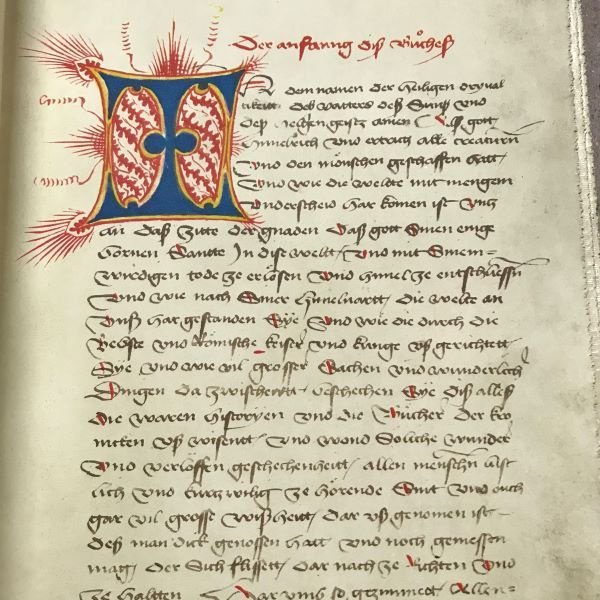 Der anfanng diß Bůches
In dem namen der heiligen dryual
tikeitt Deß vatters deß Suns vnd
deß heilgen geistz amen Alß gott
himelrich vnd ertrich alle creaturen
vnd den mönschen geschaffen hatt
vnd wie die weltte mit mengem
vnderscheid har komen ist vntz
an daß zitte der gnaden Daß gott Sinen einge
bornen Santte In dise weltt, vnd mit Sinem
wirdigen tode ze erlösen vnd himel ze entschliessen
vnd wie nach Siner himelfartt die weltte an
vnß har gestanden Sye vnd wie die durch die
Bebste vnd Römische keiser vnd künge vß gerichtett
Sye vnd wie vil grosser Sachen vnd wunderlich
Dingen da zwischentt beschechen Sye Diß alles
die waren historyen vnd die Bücher Der kro
nicken vß wisentt, vnd wond Soliche wunder
vnd verloffen geschechenheitt, allen menschen lust
lich vnd kurtzwilig ze hörende Sint vnd ouch
gar vil grosse wißheitt, dar vß genomen ist
Deß man dick genossen hatt vnd noch geniessen
mag, der Sich flissett, dar nach ze Richten vnd
ze haltten Dar vmb so gezimmett, Allen